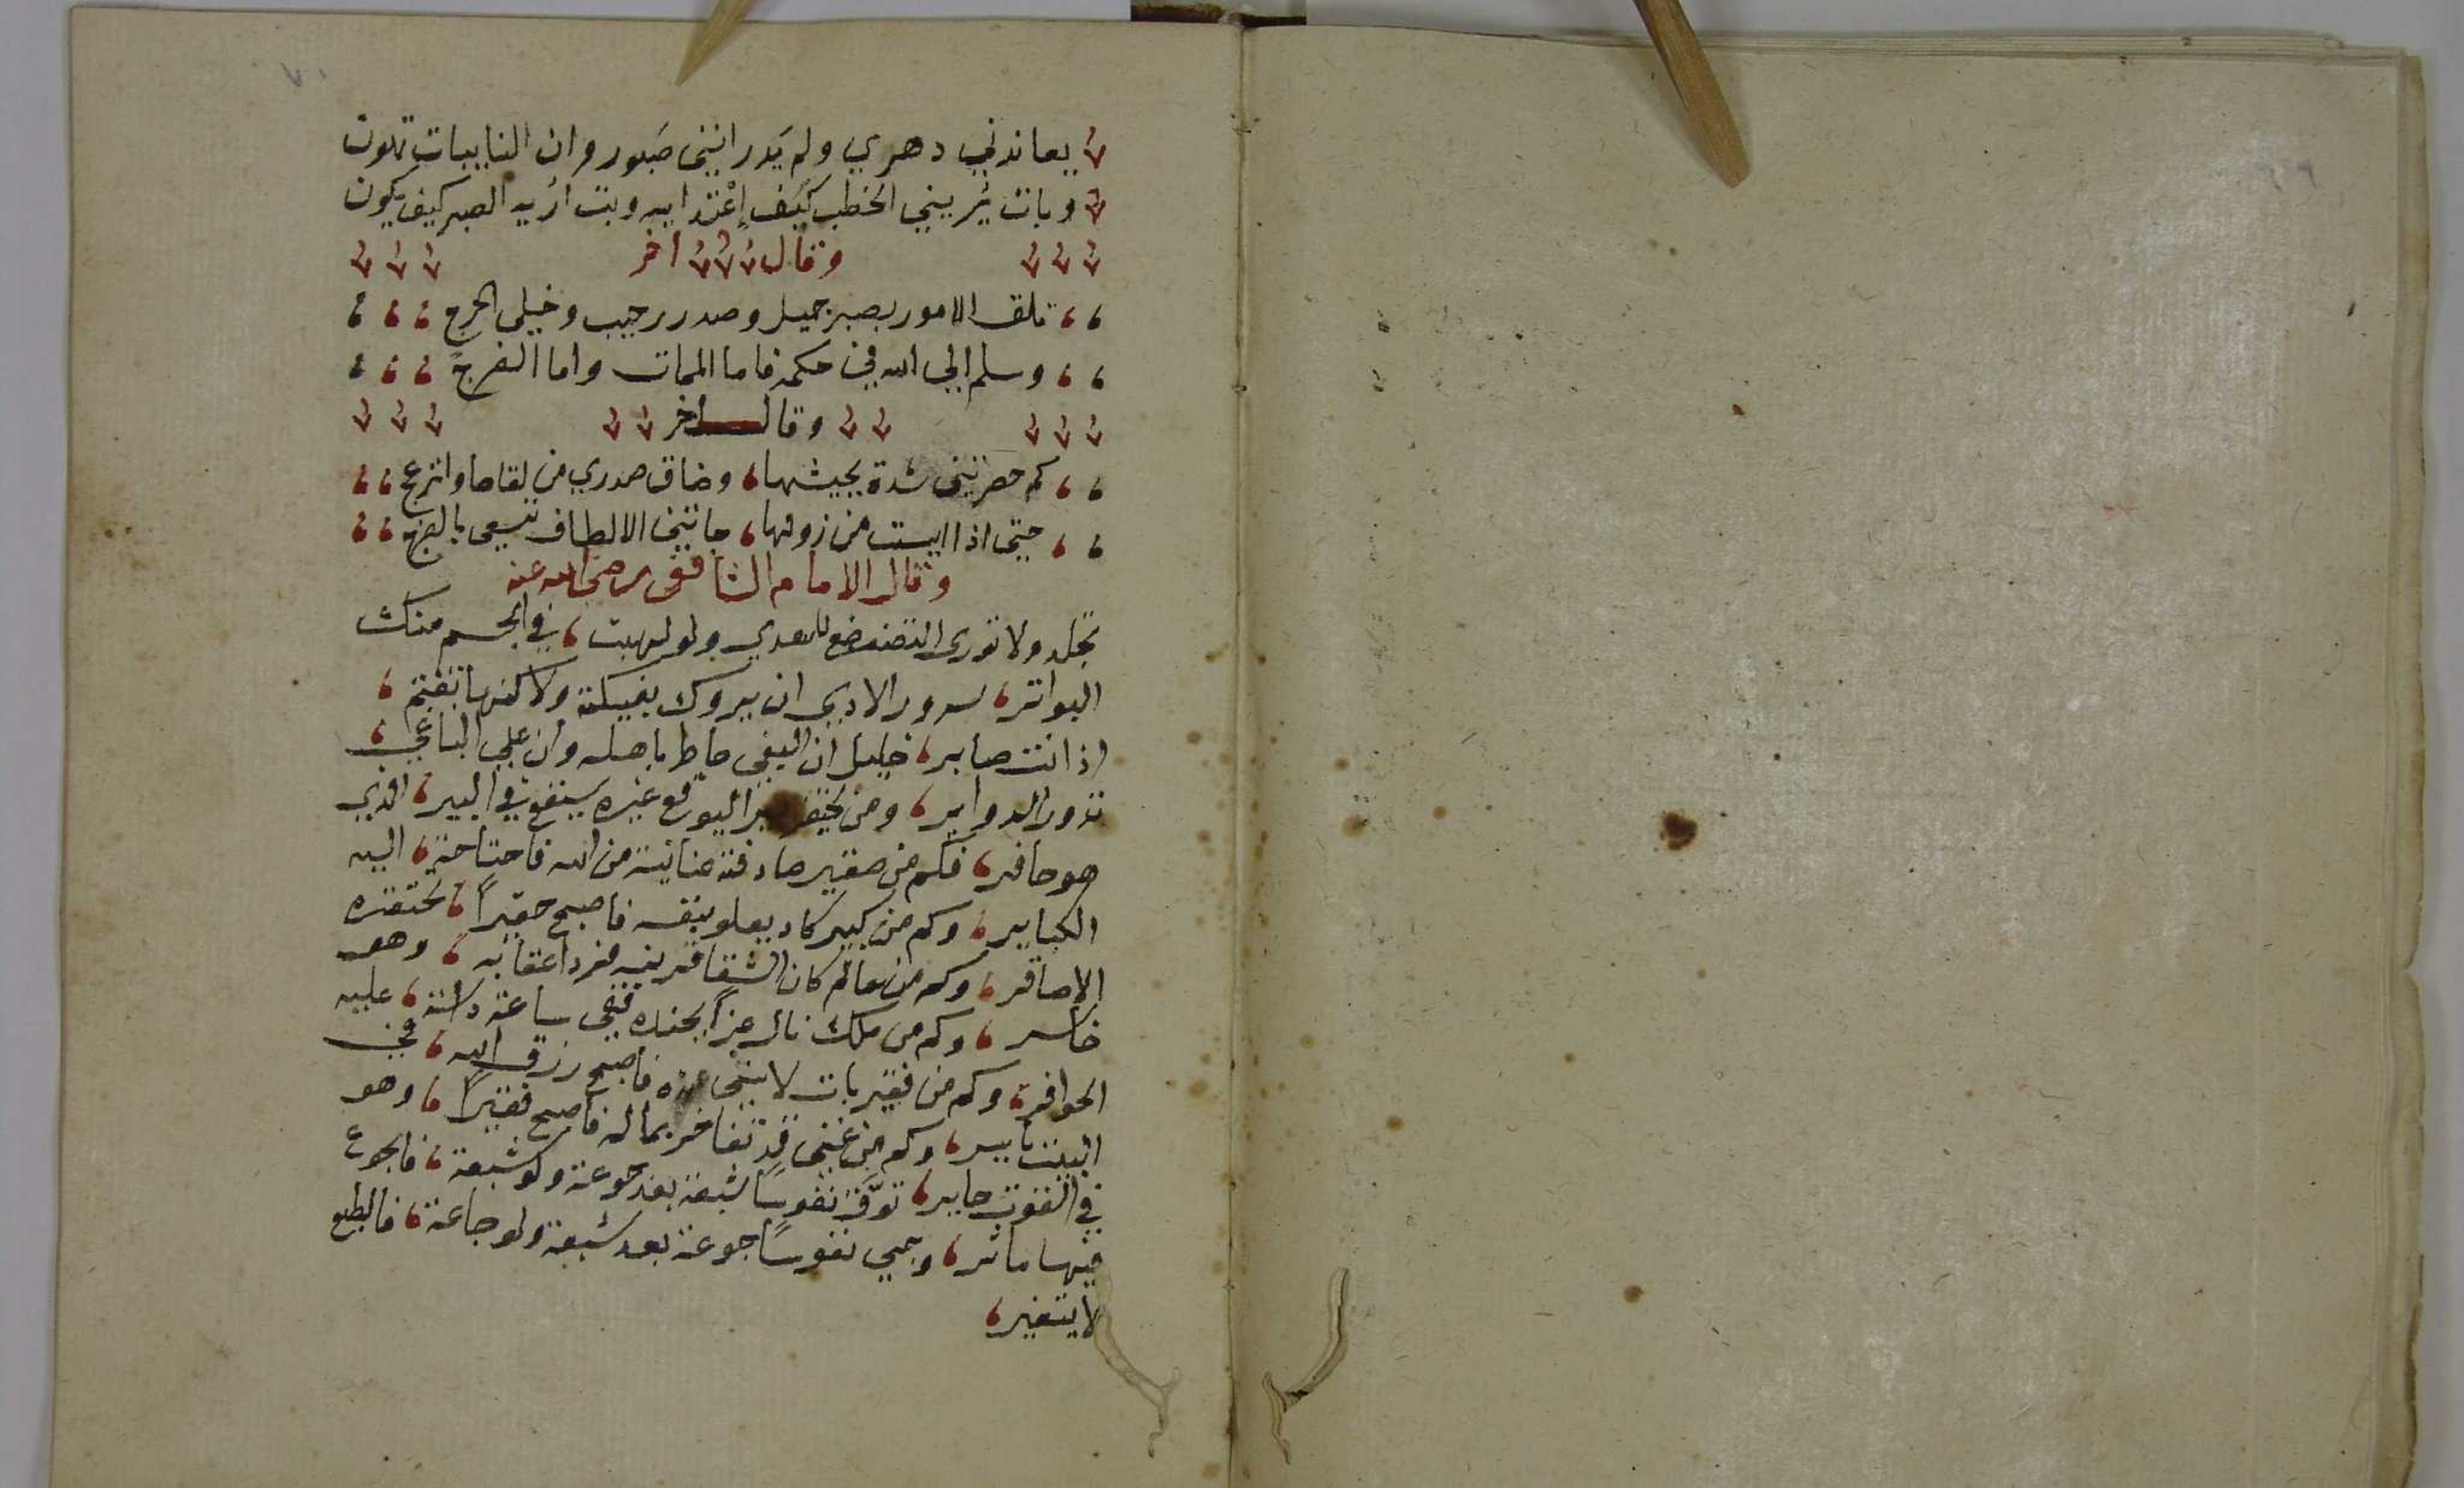 يعاندني دهري ولم يَدر انني صَبور وان النايبات تهون
وبات يُريني الخطب كيف إعْتدايه وبت اُريه الصبر كيف يكون
وقال اخر
تلق الامور بصبر جميل وصدر رحيب وخيلى الحرج
وسلم الي الله في حكمه فاما الممات واما الفرج
وقال اخر
كم حضرتني شدة بجيشها، وضاق صدري من لقاها وانزعج
حتى اذا ايست من زولها، جاتني الالطاف تسعى بالفرج
وقال الامام الشافعي رضي الله عنه
تجلد ولا تورى التضعضع للعدي ولو لهبت، في الجسم منك
البواتر، سرور الاديى ان يروك بفيكة ولاكنها تغتم،
اذ انت صابر، خليل ان البغي حاط باهله وان علي الباغي،
تدور الدواير، ومن يحفر بيرا ليوقع غيره سيقع في البير، الذي
هو حافر، فكم من صغير صادفته عناية من الله فاحتاحة، اليه
الكبايير، وكم من كبير كاد يعلو بنفسه فاصبح حقيراً، تحتقره
الاصاغر، وكم من عالم كان الشقا قرينه فرد اعقابه، وهو
خاسر، وكم من ملك نال عزاً بجنده ففي ساعة داسته، عليه
الحوافر، وكم من فقير بات لا يبني عنده فاصبح رزق الله، في
البيت ناير، وكم من غني قد تفاخر بماله فاصبح فقيراً، وهو
في القوت حاير، توَّق نفوساً شبعة بعد جوعة ولو شبعة، فالجوع
فيها ماثر، وجي نفوساً جوعة بعد شبعة ولو جاعة، فالطبع
لا يتغير،